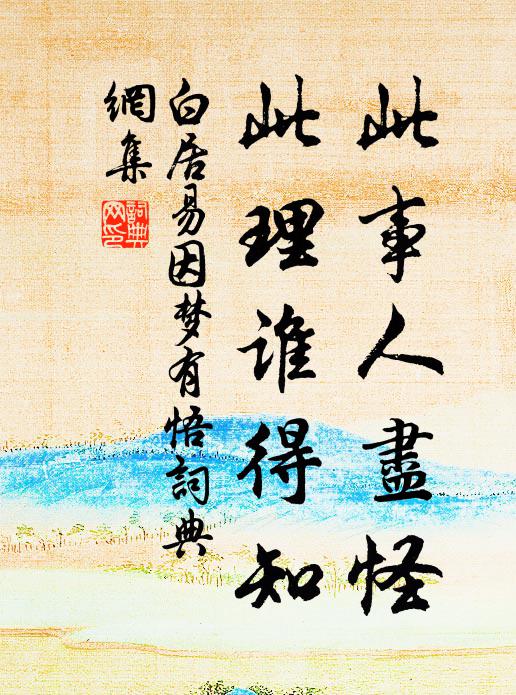 此事人盡怪
此理谁得知
白居易因梦有悟詞典
網集
詞典
网印